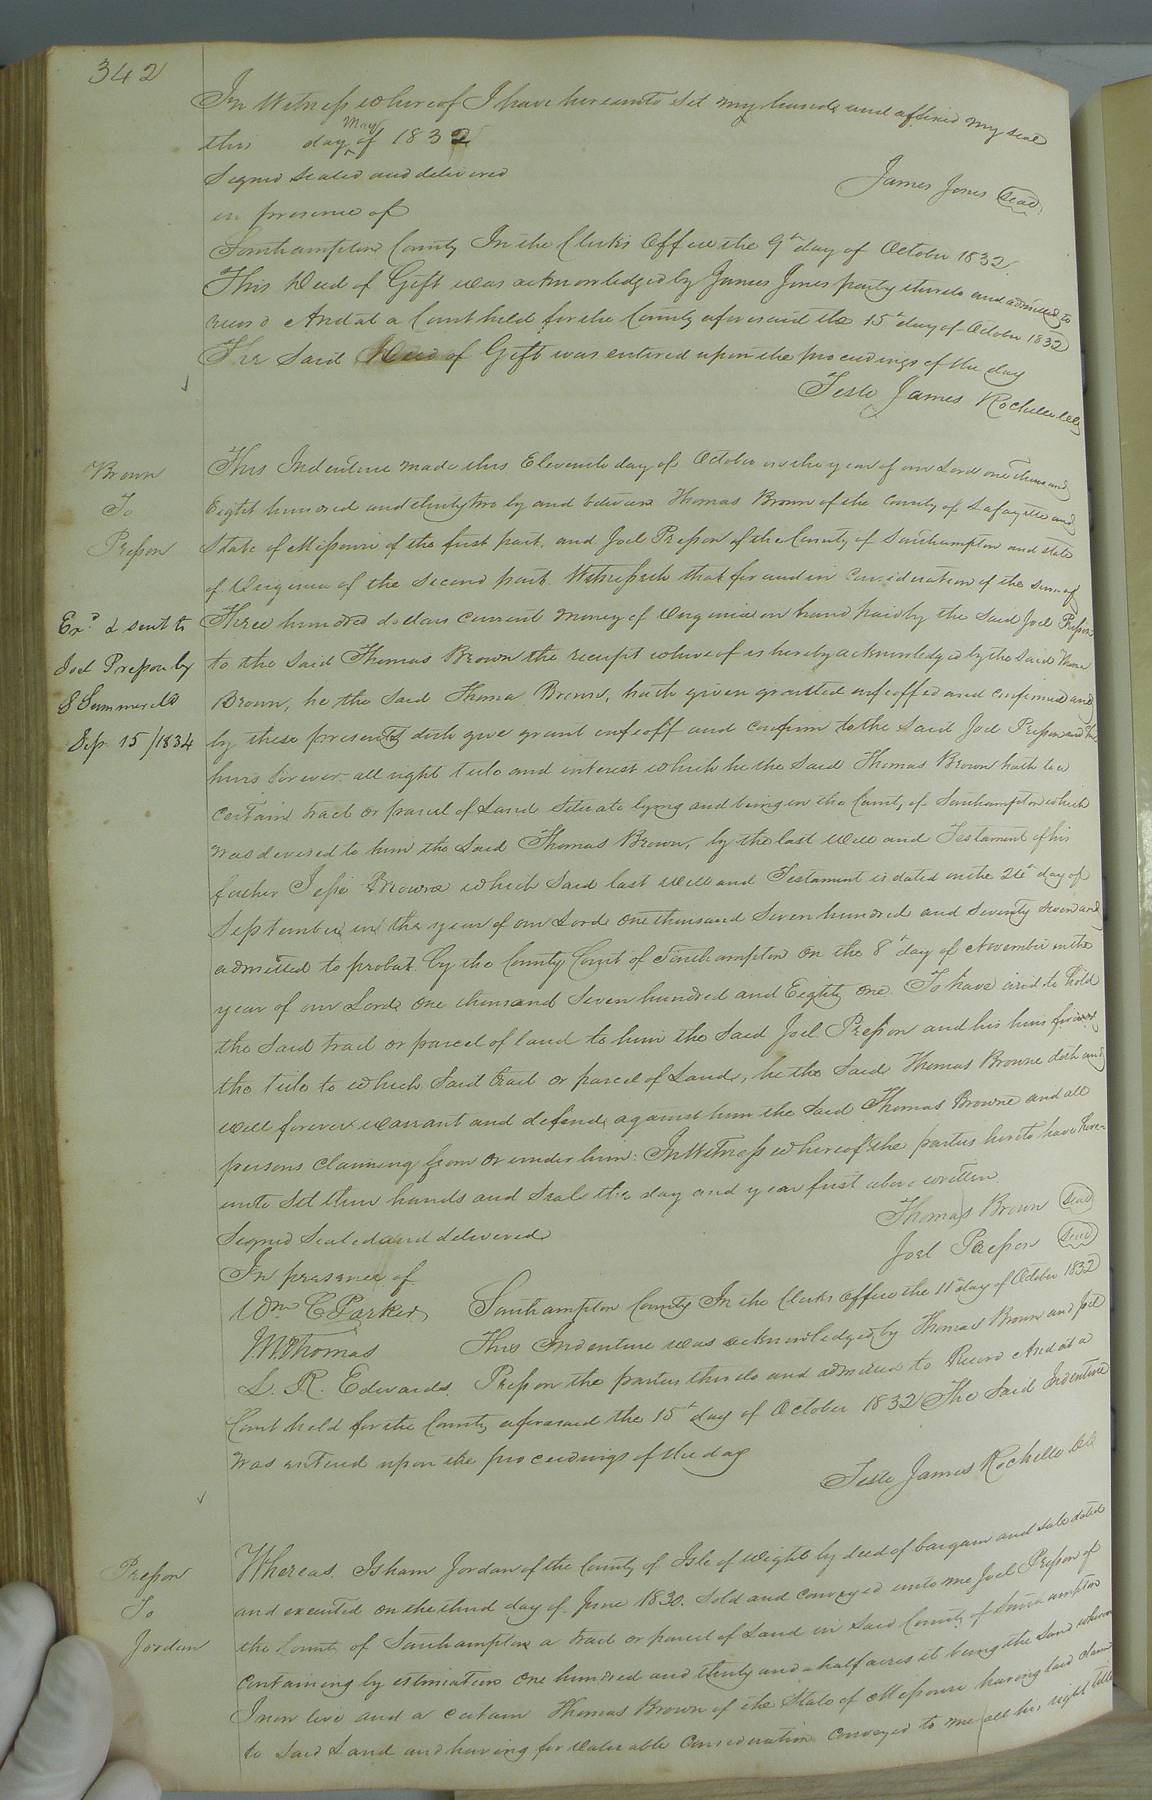 342
In Witness whereof I have hereunto set my hand and affixed my seal
this day May of 1832
Signed Sealed and delivered
James Jones Seal
in presence of
Southampton County In the Clerks Office the 9th day of October 1832
This Deed of Gift was acknowledged by James Jones party thereto and admitted to
record And at a Court held for the County aforesaid the 15th day of October 1832
The Said Deed of Gift was entered upon the proceedings of the day
Teste James Rochelle
Brown
To
Presson
This Indenture made this Eleventh day of October in the year of our Lord one thousand
Eight hundred and thirty two by and between Thomas Brown of the County of Lafayette and
State of Missouri of the first part, and Joel Presson of the County of Southampton and state
of Virginia of the Second part. Witnesseth that for and in consideration of the sum of
Exd & sent to
Joel Presson by
Sep. 15/1834
Three hundred dollars current money of Virginia in hand paid by the Said Joel Presson
to the Said Thomas Brown the receipt whereof is hereby acknowledged by the Said Thomas
Brown, he the Said Thomas Brown, hath given granted enfeoffed and confirmed and
by these presents doth give grant enfeoff and confirm to the Said Joel Presson and his
heirs forever all right title and interest which he the Said Thomas Brown hath to a
certain tract or parcel of Land situate lying and being in the County of Southampton which
was devised to him the Said Thomas Brown, by the last will and Testament of his
father Jesse Browne which Said last will and Testament is dated on the day of
September in the year of our Lord one thousand Seven hundred and seventy seven and
admitted to probat by the County Court of Southampton on the 8th day of November in the
year of our Lord one thousand Seven hundred and Eighty one. To have and to hold
the Said tract or parcel of land to him the Said Joel Presson and his heirs forever
the title to which Said tract or parcel of Land, he the Said Thomas Browne doth and
will forever warrant and defend against him the Said Thomas Browne and all
persons claiming from or under him: In Witness whereof the parties hereto have here-
unto Set their hands and Seals the day and year first above written.
Signed Sealed and delivered
Thomas Brown Seal
In presence of
Joel Presson Seal
Wm C Parker
Southampton County In the Clerks Office the 11th day of October 1832
M Thomas
This Indenture was acknowledged by Thomas Brown and Joel
L. R. Edwards.
Presson the parties thereto and admitted to Record And at a
Court held for the County aforesaid the 15th day of October 1832 The Said Indenture
was entered upon the proceedings of the day
Teste James Rochelle
Presson
To
Jordan
Whereas Isham Jordan of the County of Isle of Wight by deed of bargain and sale dated
and executed on the third day of June 1830. Sold and conveyed unto me Joel Presson of
the County of Southampton a tract or parcel of Land in Said County of Southampton
containing by estimation one hundred and thirty and a half acres it being the Land whereon
I now live and a certain Thomas Brown of the State of Missouri having laid claim
to Said Land and having for valuable consideration conveyed to me all his right title